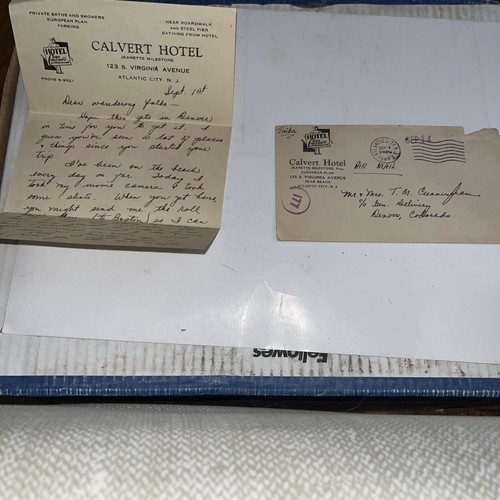 PRIVATE BATHS AND SHOWERS
EUROPEAN PLAN
PARKING
NEAR BOARDWALK
AND STEEL PIER
BATHING FROM HOTEL
HOTEL
CALVERT HOTEL
JEANETTE MILESTONE
123 S. VIRGINIA AVENUE
ATLANTIC CITY, N. J.
Sept. 1st
Dear wandering folks -
Hope this gets in Denver
in time for you to get it. I
guess you've seen a lot of places
& things since you started your
trip.
I've been on the beach
every day so far. Today I
took my movie camera & took
some shots. When you get home,
you might send me the roll
as I can
HOTEL
Calvert Hotel
JEANETTE MILESTONE, Prop.
EUROPEAN PLAN
123 S. VIRGINIA AVE.
NEAR BEACH
ATLANTIC CITY, N. J.
177
AIR MAIL
Mr. & Mrs. T. M. Cunningham
c/o Gen. Delivery
Denver, Colorado
Fellowes